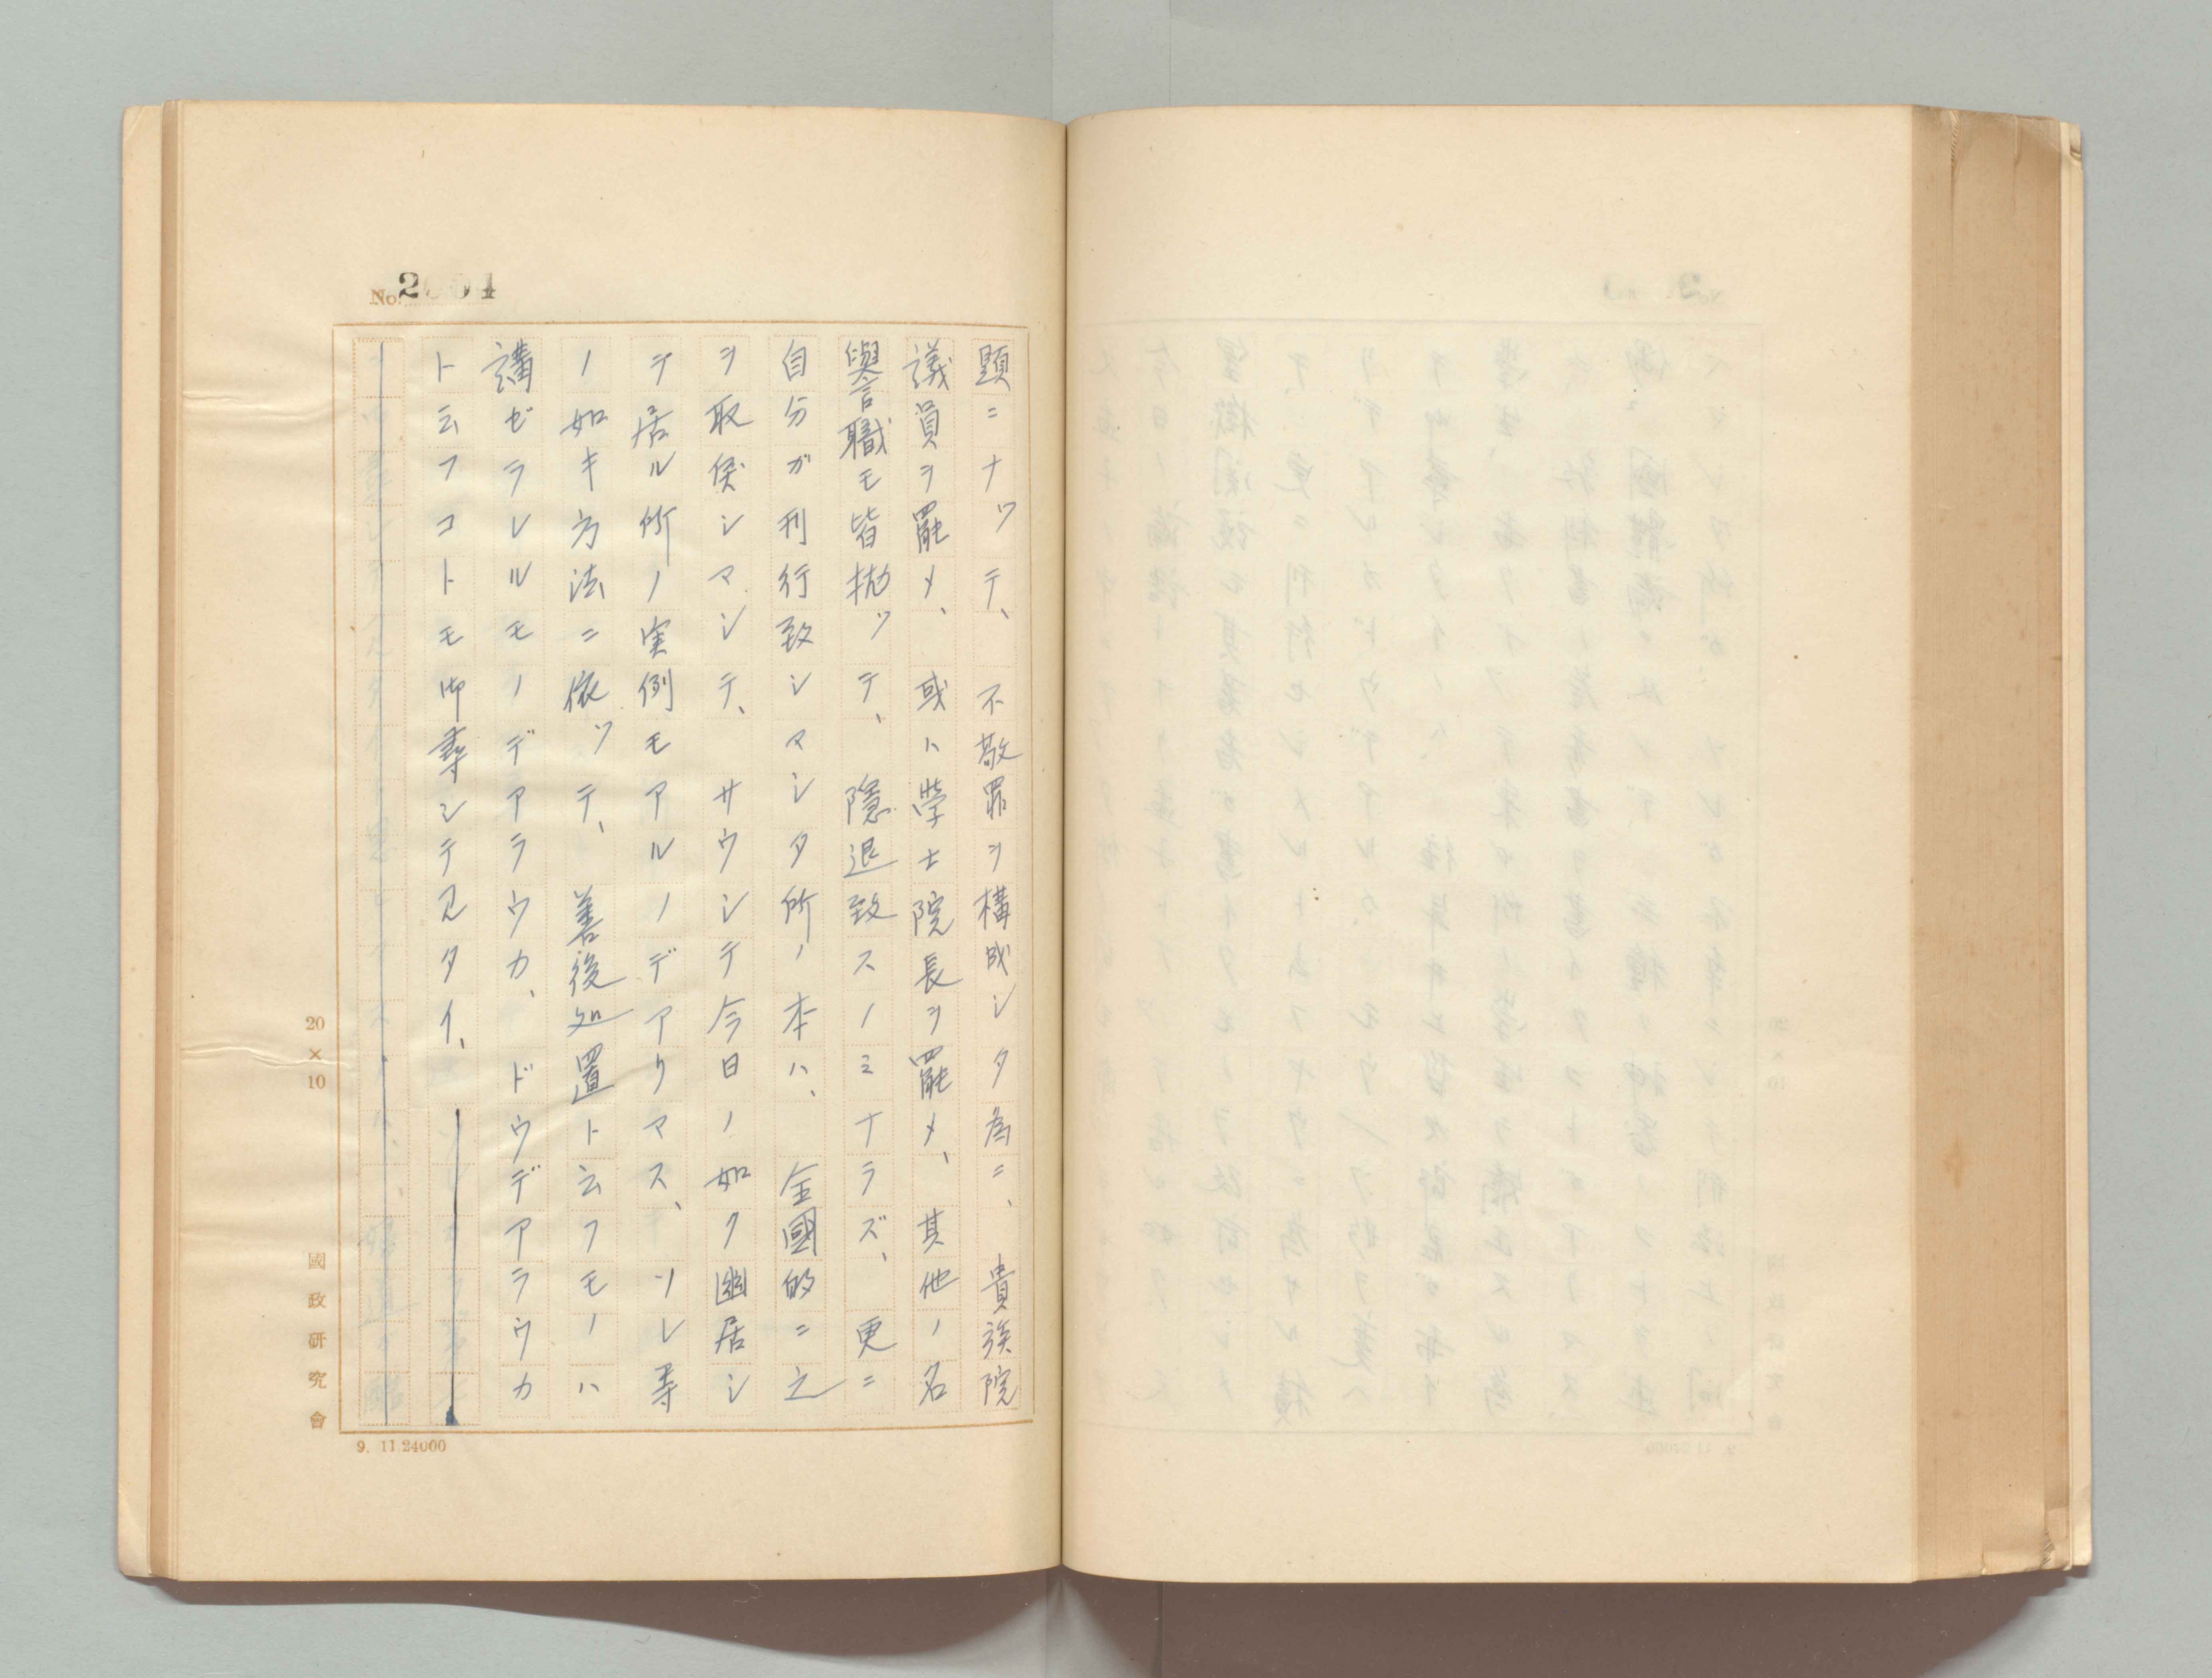 No. 2004
題ニナツテ、不敬罪ヲ構成シタ為ニ、貴族院
議員ヲ罷メ、或ハ學士院長ヲ罷メ、其他ノ名
譽職モ皆抛ツテ、隱退致スノミナラズ、更ニ
自分ガ刊行致シマシタ所ノ本ハ、全國的ニ之
ヲ取戻シマシテ、サウシテ今日ノ如ク幽居シ
テ居ル所ノ実例モアルノデアリマス、ソレ等
ノ如キ方法ニ依ツテ、善後処置ト云フモノハ
講ゼラレルモノデアラウカ、ドウデアラウカ
ト云フコトモ御尋シテ見タイ、
20×10
國政研究會
9. 11 24000